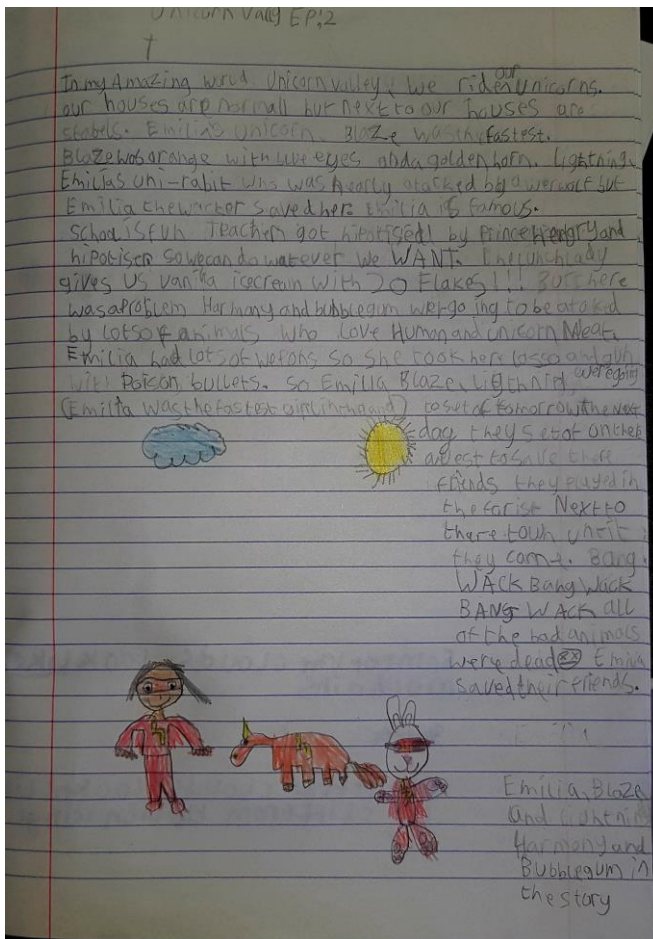 Unicorn Vally EP:2
In my Amazing world. Unicorn valley, we riden our unicorns.
our houses are normall but next to our houses are
stabels. Emilia's unicorn, Blaze was thy fastest.
Blaze was orange with blue eyes and a golden horn. Lightning,
Emilias uni-rabit who was nearly atacked by a werwolf but
Emilia the warker saved her. Emilia is famous.
School is fun Teachers got hipntised! by Prince hengry and
hipotiser so we can do watever we WANT. The lunch lady
gives us vanilla icecream with 20 Flakes!!! But there
was a problem Harmony and bubblegum wer going to be atakid
by lots of animals who love Human and unicorn Meat.
Emilia had lots of wefons so she took here lasso and gun
with Poison bullets. So Emilia Blaze, Ligthning were going
(Emilia was the fastest girl in the land) to set of tomorrow the Next
day they set of on their
quest to save there
friends they played in
the forist Next to
there town until
they come. Bang
WACK Bang Wack
BANG WACK all
of the bad animals
were dead Emilia
saved their friends.
Emilia, Blaze
and Lightning
Harmony and
Bubblegum in
the story